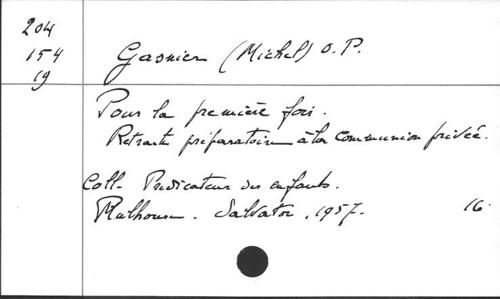 204
154
19
Gasnier (Michel) O.P.
Pour la première fois.
Retraite préparatoire à la communion privée.
Coll. Prédicateur des enfants.
Mulhouse. Salvator, 1957. 16